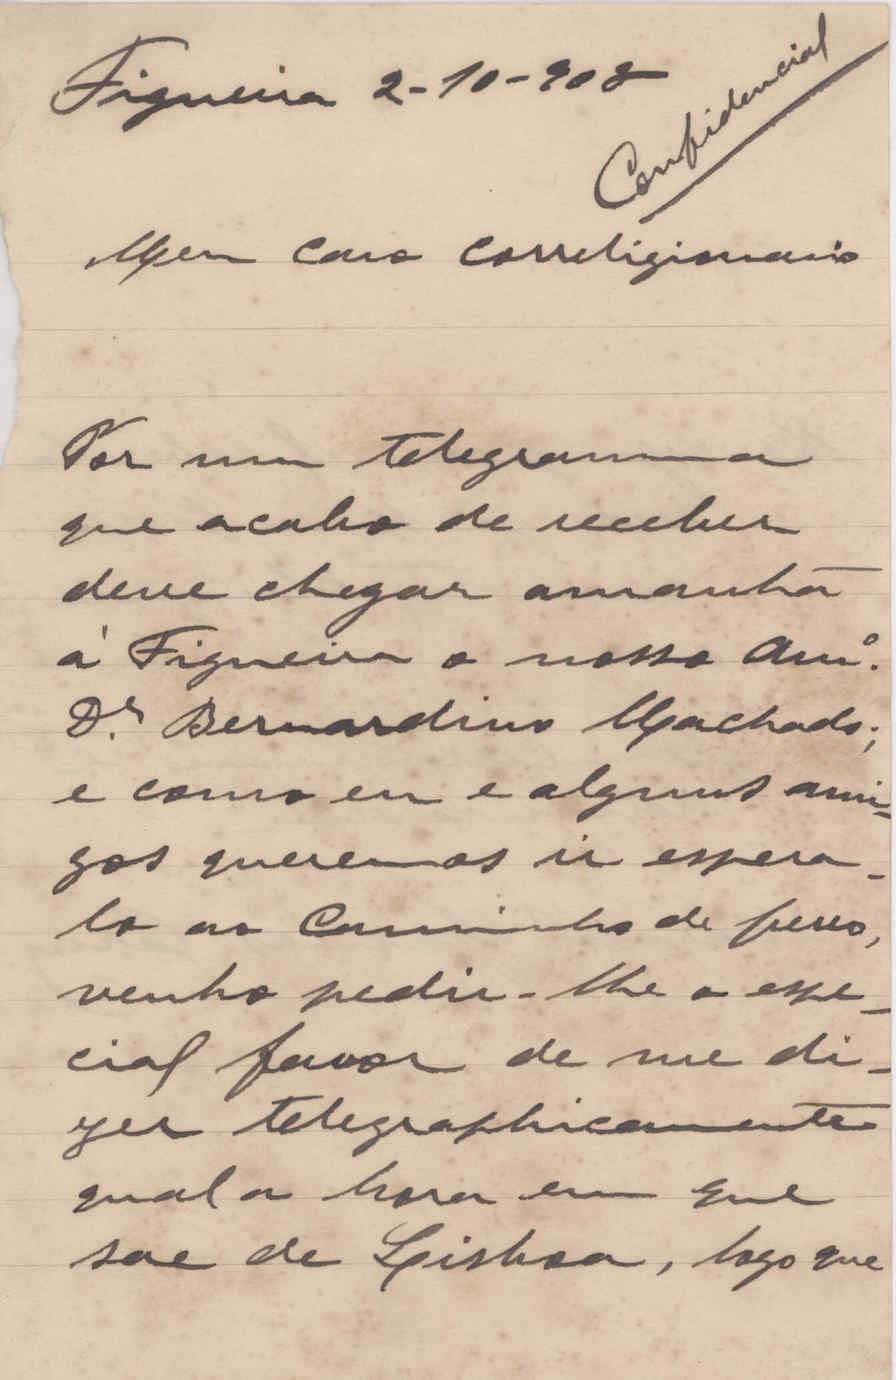 Figueira 2-10-908
Confidencial
Meu caro correligionario
Por um telegramma
que acabo de receber
deve chegar amanhã
á Figueira o nosso Amº.
Dr. Bernardino Machado;
e como eu e alguns ami-
gos queremos ir espera-
lo ao Caminho de ferro,
venho pedir-lhe o espe-
cial favor de me di-
zer telegraphicamente
qual a hora em que
sae de Lisboa, logo que